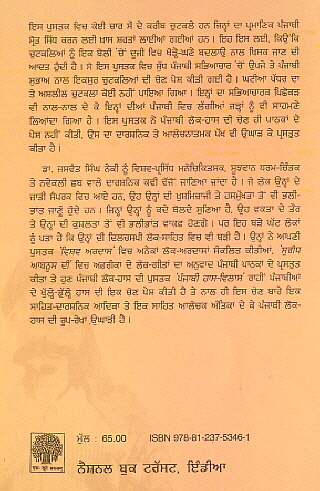 ਇਸ ਪੁਸਤਕ ਵਿਚ ਕੋਈ ਚਾਰ ਸੌ ਦੇ ਕਰੀਬ ਚੁਟਕਲੇ ਹਨ ਜਿਨ੍ਹਾਂ ਦਾ ਪ੍ਰਮਾਣਿਕ ਪੰਜਾਬੀ
ਸ੍ਰੋਤ ਸਿੱਧ ਕਰਨ ਲਈ ਖ਼ਾਸ ਸ਼ਰਤਾਂ ਲਾਈਆਂ ਗਈਆਂ ਹਨ। ਇਹ ਇਸ ਲਈ, ਕਿਉਂਕਿ
ਚੁਟਕਲਿਆਂ ਨੂੰ ਇਕ ਬੋਲੀ 'ਚੋਂ ਦੂਜੀ ਵਿਚ ਥੋੜ੍ਹੇ-ਘਣੇ ਬਦਲਾਉ ਨਾਲ ਖਿਸਕ ਜਾਣ ਦੀ
ਆਦਤ ਹੁੰਦੀ ਹੈ। ਸੋ ਇਸ ਪੁਸਤਕ ਵਿਚ ਸ਼ੁੱਧ ਪੰਜਾਬੀ ਸਭਿਆਚਾਰ 'ਚੋਂ ਉਪਜੇ ਤੇ ਪੰਜਾਬੀ
ਸੁਭਾਅ ਨਾਲ ਇਕਸੁਰ ਚੁਟਕਲਿਆਂ ਦੀ ਚੋਣ ਪੇਸ਼ ਕੀਤੀ ਗਈ ਹੈ। ਘਟੀਆ ਪੱਧਰ ਦਾ
ਤੇ ਅਸ਼ਲੀਲ ਚੁਟਕਲਾ ਕੋਈ ਨਹੀਂ ਪਾਇਆ ਗਿਆ। ਇਨ੍ਹਾਂ ਦਾ ਸਭਿਆਚਾਰਕ ਪਿਛੋਕੜ
ਵੀ ਨਾਲ-ਨਾਲ ਦੇ ਕੇ ਇਨ੍ਹਾਂ ਦੀਆਂ ਪੰਜਾਬੀ ਵਿਚ ਲੱਗੀਆਂ ਜੜ੍ਹਾਂ ਨੂੰ ਵੀ ਸਾਹਮਣੇ
ਲਿਆਂਦਾ ਗਿਆ ਹੈ। ਇਸ ਪੁਸਤਕ ਨੇ ਪੰਜਾਬੀ ਲੋਕ-ਹਾਸ ਦੀ ਚੋਣ ਹੀ ਪਾਠਕਾਂ ਦੇ
ਪੇਸ਼ ਨਹੀਂ ਕੀਤੀ, ਉਸ ਦਾ ਦਾਰਸ਼ਨਿਕ ਤੇ ਆਲੋਚਨਾਤਮਕ ਪੱਖ ਵੀ ਉਘਾੜ ਕੇ ਪ੍ਰਸਤੁਤ
ਕੀਤਾ ਹੈ।
ਡਾ. ਜਸਵੰਤ ਸਿੰਘ ਨੇਕੀ ਨੂੰ ਵਿਸ਼ਵ-ਪ੍ਰਸਿੱਧ ਮਨੋਚਿਕਿਤਸਕ, ਸੂਝਵਾਨ ਧਰਮ-ਚਿੰਤਕ
ਤੇ ਨਵੇਕਲੀ ਛਬ ਵਾਲੇ ਦਾਰਸ਼ਨਿਕ ਕਵੀ ਵੱਜੋਂ ਜਾਣਿਆ ਜਾਂਦਾ ਹੈ। ਜੋ ਲੋਕ ਉਨ੍ਹਾਂ ਦੇ
ਜ਼ਾਤੀ ਸੰਪਰਕ ਵਿਚ ਆਏ ਹਨ, ਉਹ ਉਨ੍ਹਾਂ ਦੀ ਖੁਸ਼ਮਿਜ਼ਾਜੀ ਤੇ ਹਸਮੁੱਖਤਾ ਤੋਂ ਵੀ ਭਲੀ-
ਭਾਂਤ ਜਾਣੂੰ ਹੁੰਦੇ ਹਨ। ਜਿਨ੍ਹਾਂ ਉਨ੍ਹਾਂ ਨੂੰ ਕਦੇ ਬੋਲਦੇ ਸੁਣਿਆ ਹੈ, ਉਹ ਵਕਤਾ ਦੇ ਤੌਰ
ਤੇ ਉਨ੍ਹਾਂ ਦੀ ਕੁਸ਼ਲਤਾ ਤੋਂ ਵੀ ਭਲੀਭਾਂਤ ਵਾਕਫ਼ ਹੋਣਗੇ। ਪਰ ਇਹ ਬੜੇ ਘੱਟ ਲੋਕਾਂ
ਨੂੰ ਪਤਾ ਹੈ ਕਿ ਉਨ੍ਹਾਂ ਦੀ ਦਿਲਚਸਪੀ ਲੋਕ-ਸਾਹਿਤ ਵਿਚ ਵੀ ਬੜੀ ਹੈ। ਉਨ੍ਹਾਂ ਨੇ ਅਪਣੀ
ਪੁਸਤਕ 'ਵਿਸ਼ਵ ਅਰਦਾਸ' ਵਿਚ ਅਨੇਕਾਂ ਲੋਕ-ਅਰਦਾਸਾਂ ਸੰਕਲਿਤ ਕੀਤੀਆਂ, 'ਸੁਗੰਧ
ਆਬਨੂਸ ਦੀ' ਵਿਚ ਅਫ਼ਰੀਕਾ ਦੇ ਲੋਕ-ਗੀਤਾਂ ਦਾ ਅਨੁਵਾਦ ਪੰਜਾਬੀ ਪਾਠਕਾਂ ਦੇ ਪ੍ਰਸਤੁਤ
ਕੀਤਾ ਤੇ ਹੁਣ ਪੰਜਾਬੀ ਲੋਕ-ਹਾਸ ਦੀ ਪੁਸਤਕ 'ਪੰਜਾਬੀ ਹਾਸ-ਵਿਲਾਸ' ਰਾਹੀਂ ਪੰਜਾਬੀਆਂ
ਦੇ ਖੁੱਲ੍ਹੇ-ਡੁੱਲ੍ਹੇ ਹਾਸ ਦੀ ਇਕ ਚੋਣ ਪੇਸ਼ ਕੀਤੀ ਹੈ ਤੇ ਨਾਲ ਹੀ ਇਸ ਚੋਣ ਬਾਰੇ ਇਕ
ਸਾਹਿਤ-ਦਾਰਸ਼ਨਿਕ ਆਦਿਕਾ ਤੇ ਇਕ ਸਾਹਿਤ ਆਲੋਚਕ ਅੰਤਿਕਾ ਦੇ ਕੇ ਪੰਜਾਬੀ ਲੋਕ-
ਹਾਸ ਦੀ ਰੂਪ-ਰੇਖਾ ਉਘਾੜੀ ਹੈ।
ਮੁੱਲ : 65.00 ISBN 978-81-237-5346-1
ਨੈਸ਼ਨਲ ਬੁਕ ਟਰੱਸਟ, ਇੰਡੀਆ